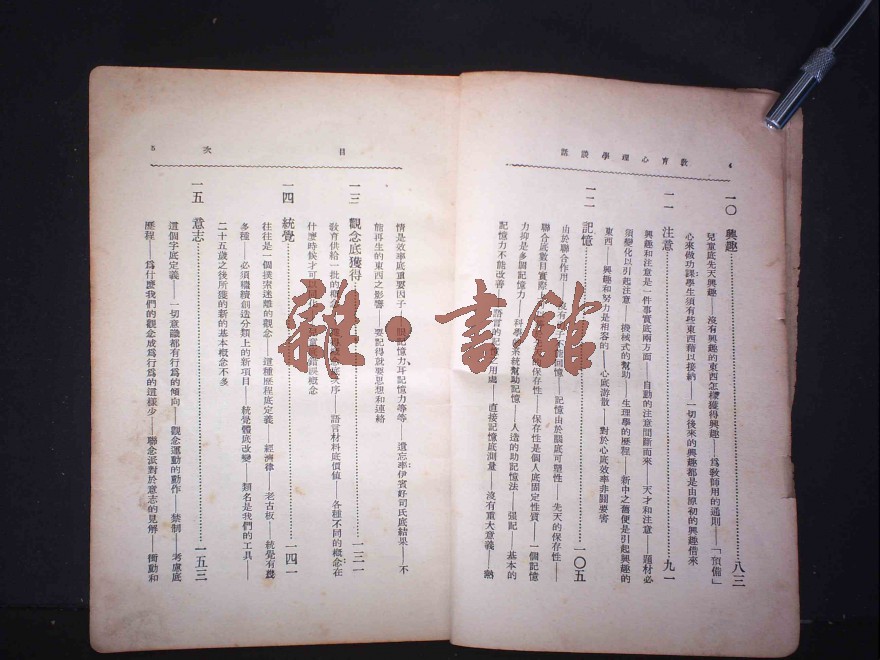 教育心理學談話
4
一〇 興趣 八三
兒童底先天興趣——沒有興趣的東西怎樣獲得興趣——為教師用的通則——「預備」
心來做功課學生須有些東西藉以接納——一切後來的興趣都是由原初的興趣借來
一一 注意 九一
興趣和注意是一件事實底兩方面——自動的注意間斷而來——天才和注意——題材必
須變化以引起注意——機械式的幫助——生理學的歷程——新中之舊便是引起興趣的
東西——興趣和努力是相容的——心底游散——對於心底效率非關要害
一二 記憶 一〇五
由於聯合作用——沒有 不能回憶——記憶由於腦底可塑性——先天的保存性——
聯合底數目實際 的保存性——保存性是個人底固定性質——一個記憶
力抑是多個記憶力——科學的系統幫助記憶——人造的助記憶法——強記——基本的
記憶力不能改善——語言的記憶之用處——直接記憶底測量——沒有重大意義——熱
目次
5
情是效率底重要因子——眼記憶力耳記憶力等等——遺忘率伊賓好司氏底結果——不
能再生的東西之影響——要記得就要思想和連絡
一三 觀念底獲得 一三一
教育供給一批的概念 底次序——語言材料底價值——各種不同的概念在
什麼時候才可以 錯誤概念
一四 統覺 一四一
往往是一個撲索迷離的觀念——這種歷程底定義——經濟律——老古板——統覺有幾
多種——必須繼續創造分類上的新項目——統覺體底改變——類名是我們的工具——
二十五歲之後所獲的新的基本概念不多
一五 意志 一五三
這個字底定義——一切意識都有行為的傾向——觀念運動的動作——禁制——考慮底
歷程——為什麼我們的觀念成為行為的這樣少——聯念派對於意志的見解——衝動和
雜·書館